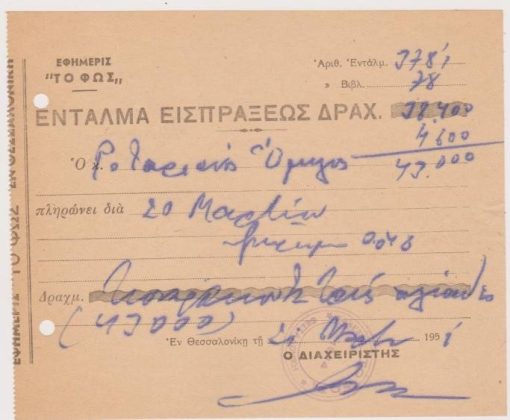 ΕΦΗΜΕΡΙΣ
"ΤΟ ΦΩΣ"
Ἀριθ. Ἐντάλμ. 3781
» Βιβλ. 78
ΕΝΤΑΛΜΑ ΕΙΣΠΡΑΞΕΩΣ ΔΡΑΧ. 38.400
4600
43.000
Ὁ κ. Ροταριανός Όμιλος
πληρώνει διὰ 20 Μαρτίου
Δραχμ. Τεσσαράκοντα τρείς χιλιάδες
(43000)
Ἐν Θεσσαλονίκῃ τῇ 1951
Ο ΔΙΑΧΕΙΡΙΣΤΗΣ
ΕΦΗΜΕΡΙΣ "ΤΟ ΦΩΣ" ΕΝ ΘΕΣΣΑΛΟΝΙΚΗ